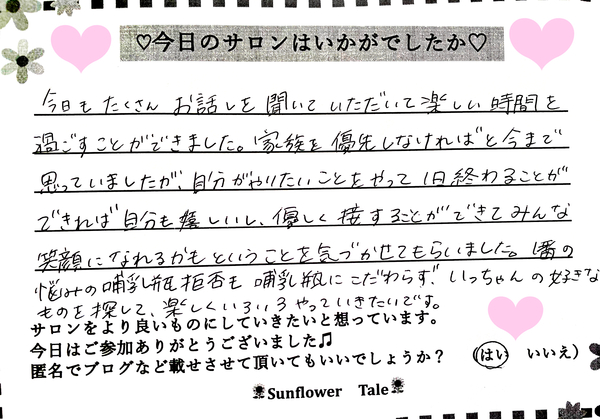 ♡今日のサロンはいかがでしたか♡
今日も たくさん お話しを 聞いて いただいて 楽しい 時間を
過ごすことができました。家族を 優先しなければと 今まで
思っていましたが、自分がやりたいことをやって 1日終わることが
できれば 自分も 嬉しいし、優しく 接することができて みんな
笑顔に なれるかも ということを 気づかせてもらいました。1番の
悩みの 哺乳瓶 拒否も 哺乳瓶に こだわらず、いっちゃんの 好きな
ものを 探して、楽しくいろいろ やっていきたいです。
サロンをより良いものにしていきたいと想っています。
今日はご参加ありがとうございました♫
匿名でブログなど載せさせて頂いてもいいでしょうか？ (はい いいえ)
Sunflower Tale